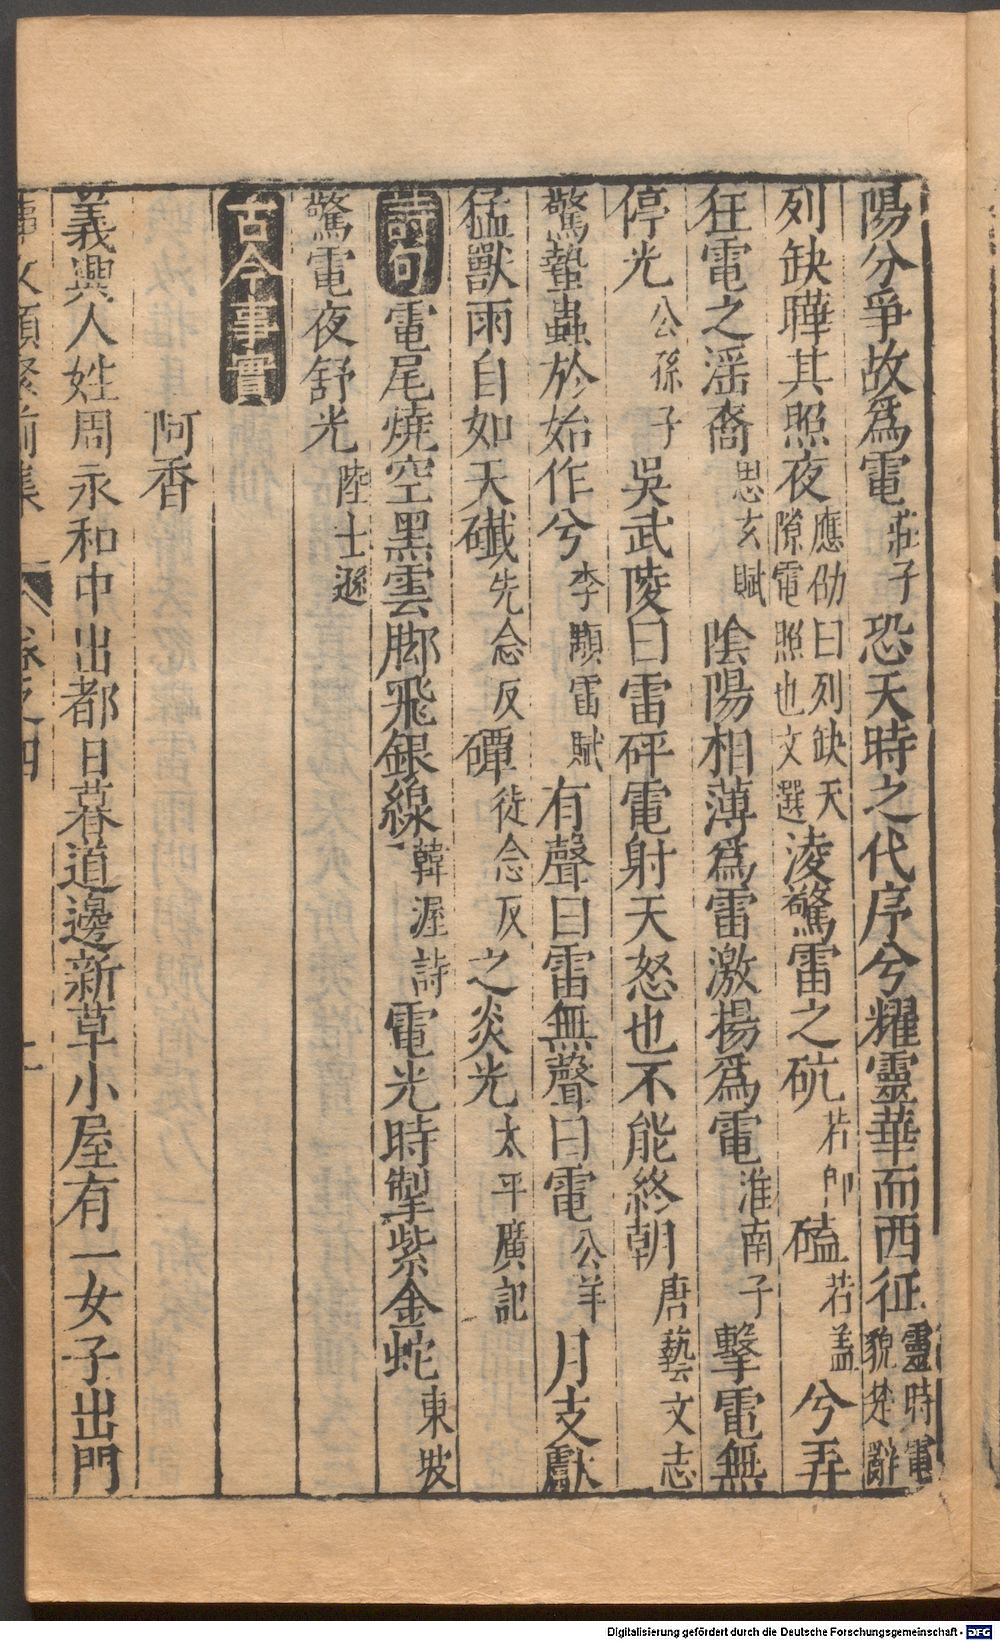 陽分爭故爲電莊子恐天時之代序兮耀靈華而西征靈時電貌楚辭
列缺曄其照夜應劭曰列缺天隙電照也文選淩驚雷之硫若郎磕若蓋兮弄
狂電之滛裔思玄賦陰陽相薄爲雷激揚爲電淮南子擊電無
停光公孫子吳武陵曰雷砰電射天怒也不能終朝唐藝文志
驚蟄蟲於始作兮李顒雷賦有聲曰雷無聲曰電公羊月支獻
猛獸兩目如天磩先念反磹徒念反之炎光太平廣記
詩句電尾燒空黑雲脚飛銀線韓渥詩電光時掣紫金蛇東坡
驚電夜舒光陸士遜
古今事實
阿香
義興人姓周永和中出都日暮道邊新草小屋有一女子出門
事文類聚前集 卷之四
Digitalisierung gefördert durch die Deutsche Forschungsgemeinschaft - DFG